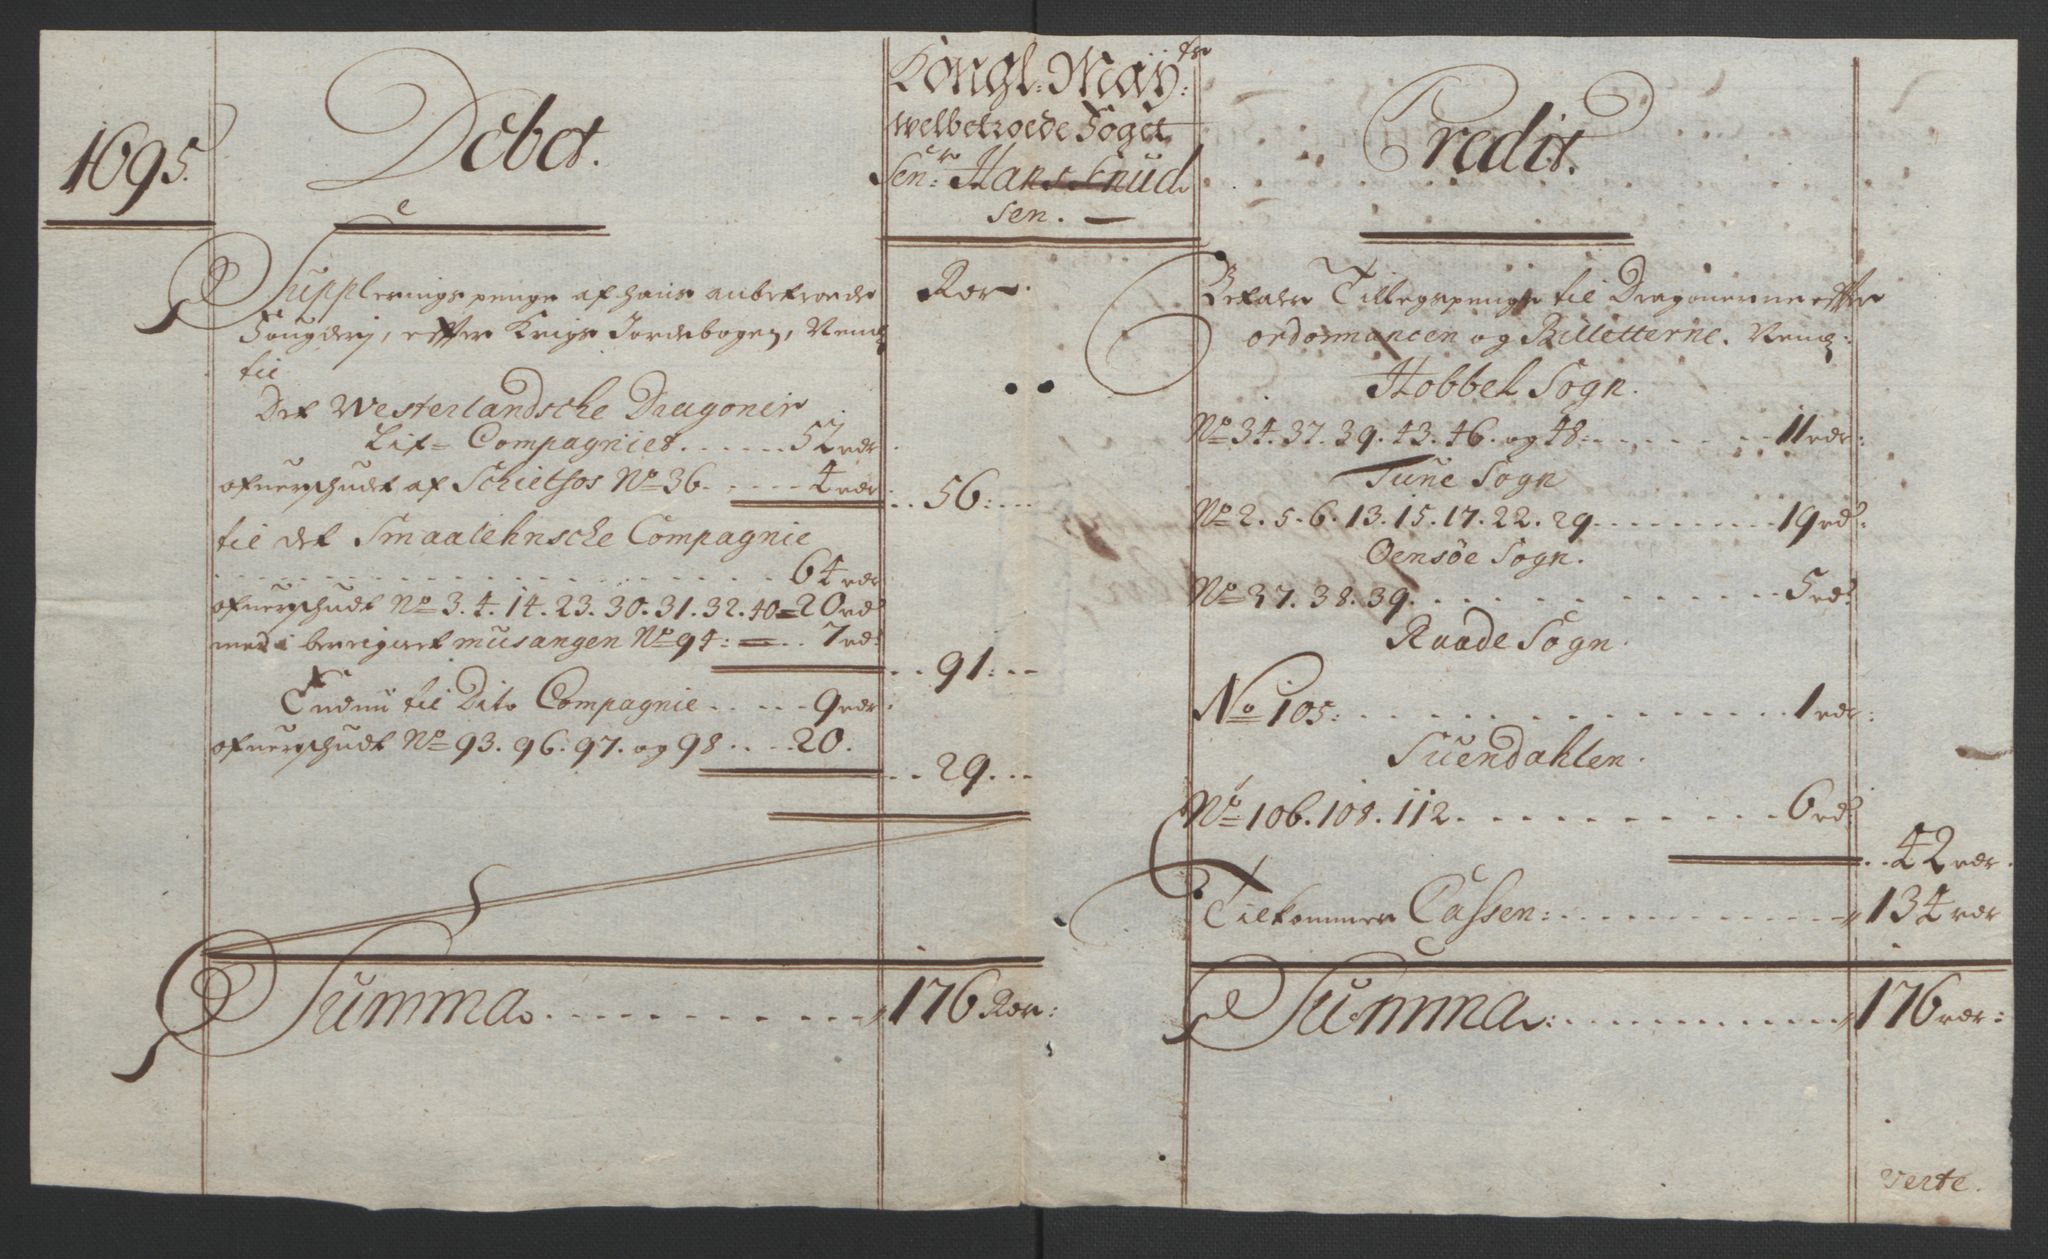 1695.
Debet.
Kongl: May:ts
welbetroede Foget
Sen:r Hans Knud
sen.
Credit.
Supplerings penge af hans anbetroede
Fougderj, efter Krigs Jordebogen, Neml:
til
Det Westerlandsche Dragoner
Lif= Compagniet. . . . . . 52 rdr
ofuerschudt af Schietsos No 36. . . . . . 4 rdr
Rdr.
. . 56: . . .
til det Smaalehnsche Compagnie
. . . . . . . . . . . . . . 64 rdr
ofuerschudt No 3. 4. 14. 23. 30. 31. 32. 40 = 20 rd:
med i beregnet musangen No 94: = . . 7 rd:
. . 91: . . .
Endnu til Dito Compagnie . . . . . 9 rdr:
ofuerschudt No 93. 96. 97. og 98 . . . . 20.
. . 29. . . .
Summa. . . . . . . . . . . 176 Rdr:
Betalt Tillegspenge til Dragonerne efter
ordonnancen og Billetterne. Neml:
Hobbel Sogn.
No 34. 37. 39. 43. 46. og 48: . . . . . . . 11 rdr:
Tune Sogn
No 2. 5. 6. 13. 15. 17. 22. 29 . . . . . . . . . 19 rd:
Oensöe Sogn.
No 37. 38. 39. . . . . . . . . . . . 5 rd:
Raade Sogn.
No 105: . . . . . . . . . . . . 1 rdr:
Suendahlen.
No 106. 108. 112. . . . . . . . . . . 6 rd:
. . 42 rdr.
Tilkommer Cassen: . . . . . . . . . . . 134 rdr
Summa: . . . . . . . . . . . 176 rdr:
Verte.